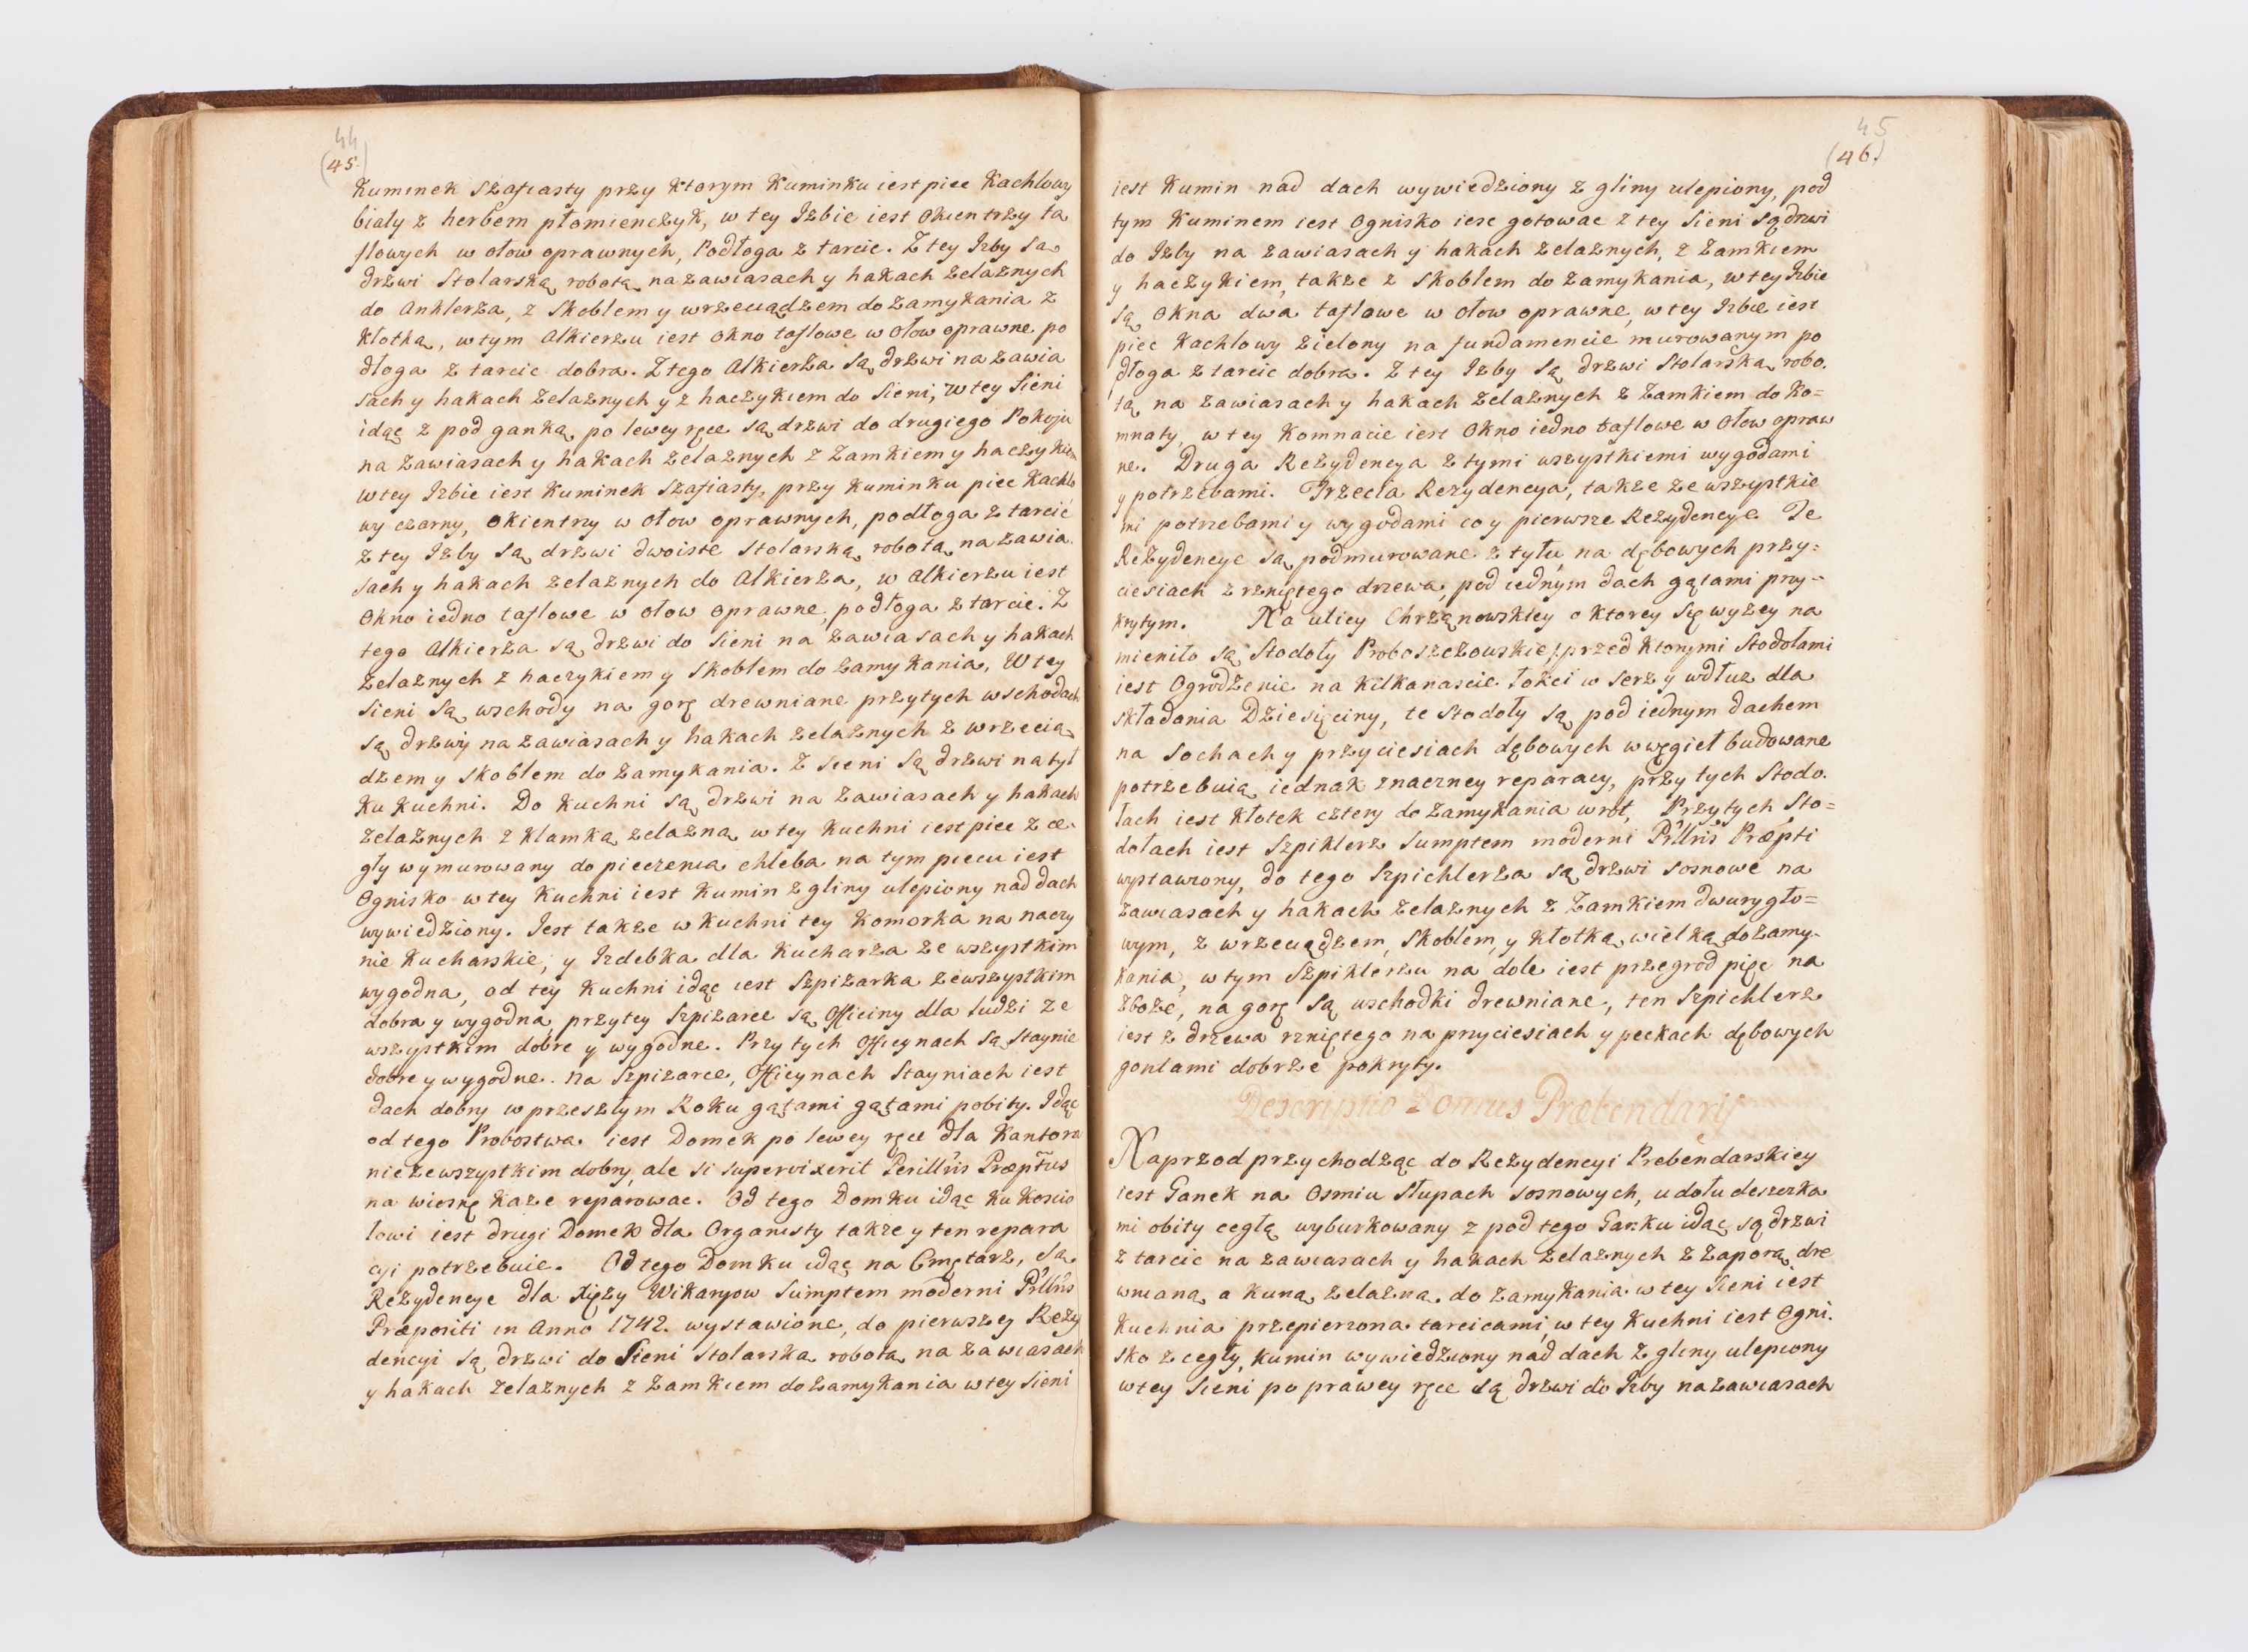 44
(45.)
Kuminek Szafiasty przy ktorym Kuminku iest piec Kachlowy
biały z herbem płomienczyk, w tey Izbie iest Okien trzy ta
flowych w ołow oprawnych, Podłoga z tarcic. Z tey Izby są
drzwi Stolarską robotą na zawiasach y hakach żelaznych
do Anklerza, z Skoblem y wrzeciądzem do zamykania z
Kłotką, w tym Alkierzu iest okno taflowe w Ołow oprawne po
dłoga z tarcic dobra. Z tego Alkierza są drzwi na zawia
sach y hakach żelaznych y z haczykiem do Sieni, w tey Sieni
idąc z pod ganką po lewey ręce są drzwi do drugiego Pokoju
na zawiasach y hakach żelaznych z Zamkiem y haczykiem
w tey Izbie iest Kuminek Szafiasty, przy Kuminku piec Kachlo
wy czarny, okien trzy w ołow oprawnych, podłoga z tarcic
z tey Izby są drzwi dwoiste Stolarską robotą na zawia
sach y hakach żelaznych do Alkierza, w Alkierzu iest
Okno iedno taflowe w ołow oprawne, podłoga z tarcic. Z
tego Alkierza są drzwi do sieni na zawiasach y hakach
żelaznych z haczykiem y skoblem do zamykania, W tey
Sieni są wschody na gorę drewniane przytych wschodach
są drzwi na zawiasach y hakach żelaznych z wrzecią
dzem y skoblem do zamykania. Z sieni są drzwi na tył
Ku Kuchni. Do Kuchni są drzwi na zawiasach y hakach
żelaznych z klamką żelazną w tey Kuchni iest piec z ce
gły wymurowany do pieczenia chleba na tym piecu iest
Ognisko w tey Kuchni iest Kumin z gliny ulepiony nad dach
wywiedziony. Iest także w Kuchni tey Komorka na naczy
nie Kucharskie, y Izdebka dla Kucharza ze wszystkim
wygodna, od tey Kuchni idąc iest Szpiżarka zewszystkim
dobra y wygodna, przy tey Szpiżarce są Officiny dla ludzi ze
wszystkim dobre y wygodne. Przy tych Officynach są Staynie
dobre y wygodne. na Szpiżarce, Officynach Stayniach iest
dach dobry w przeszłym Roku gątami gątami pobity. Idąc
od tego Probostwa iest Domek po lewey ręce dla Kantora
nie zewszystkim dobry, ale si supervixerit Perillris Præptus
na wiosnę każe reparować. Od tego Domku idąc ku Kościo
łowi iest drugi Domek dla Organisty także y ten repara
cyi potrzebuie. Od tego Domku idąc na Cmętarz, są
Rezydencye dla Xięży Wikaryow Sumptem moderni Prllris
Præpositi in Anno 1742. wystawione, do pierwszey Rezy
dencyi są drzwi do Sieni Stolarską robotą na zawiasach
y hakach żelaznych z Zamkiem do zamykania w tey Sieni
45
(46.)
iest Kumin nad dach wywiedziony z gliny ulepiony, pod
tym Kuminem iest Ognisko ieść gotować z tey Sieni są drzwi
do Izby na zawiasach y hakach żelaznych, z Zamkiem
y haczykiem, także z skoblem do zamykania, w tey Izbie
są okna dwa taflowe w ołow oprawne, w tey Izbie iest
piec Kachlowy zielony na fundamencie murowanym po
dłoga z tarcic dobra. Z tey Izby są drzwi Stolarską robo.
tą na zawiasach y hakach żelaznych z Zamkiem do Ko=
mnaty, w tey Komnacie iest Okno iedno taflowe w Ołow opraw
ne. Druga Rezydencya z tymi wszystkiemi wygodami
y potrzebami. Trzecia Rezydencya, także ze wszystkie
mi potrzebami y wygodami co y pierwsze Rezydencye. Te
Rezydencye są podmurowane z tyłu, na dębowych przy=
ciesiach z rzniętego drzewa, pod iednym dach gątami przy=
krytym. Na ulicy Chrzanowskiey o ktorey się wyżey na
mieniło są Stodoły Proboszczowskie, przed ktorymi Stodołami
iest Ogrodzenie na kilkanaście łokci w szerz y wdłuż dla
składania Dziesięciny, te stodoły są pod iednym dachem
na sochach y przyciesiach dębowych w węgieł budowane
potrzebuią iednak znaczney reparacy, przy tych Stodo.
łach iest Kłotek cztery do zamykania wrot, Przytych Sto=
dołach iest Szpiklerz sumptem moderni Prllris Præpti
wystawiony, do tego Szpichlerza są drzwi sosnowe na
zawiasach y hakach żelaznych z Zamkiem dwurygło=
wym, z wrzeciądzem, Skoblem, y Kłotką wielką do zamy-
kania, w tym Szpiklerzu na dole iest przegrod pięć na
zboże, na gorę są uschodki drewniane, ten Szpichlerz
iest z drzewa rzniętego na przyciesiach y peckach dębowych
gontami dobrze pokryty.
Descriptio Domus Præbendarij
Naprzod przychodząc do Rezydencyi Prebendarskiey
iest Ganek na Osmiu Słupach sosnowych, u dołu deszczka
mi obity cegłą wyburkowany z pod tego Ganku idąc są drzwi
z tarcic na zawiasach y hakach żelaznych z zaporą dre
wnianą a kuną żelazną do zamykania w tey Sieni iest
Kuchnia przepierzona tarcicami, w tey Kuchni iest Ogni.
sko z cegły, kumin wywiedziony nad dach z gliny ulepiony
w tey Sieni po prawey ręce są drzwi do Izby na zawiasach